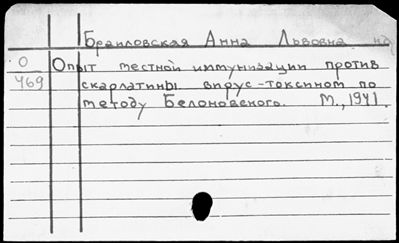 Браиловская Анна Львовна
О Опыт местной иммунизации против
469 скарлатины вирус-токсином по
методу Белоновского. М., 1941.